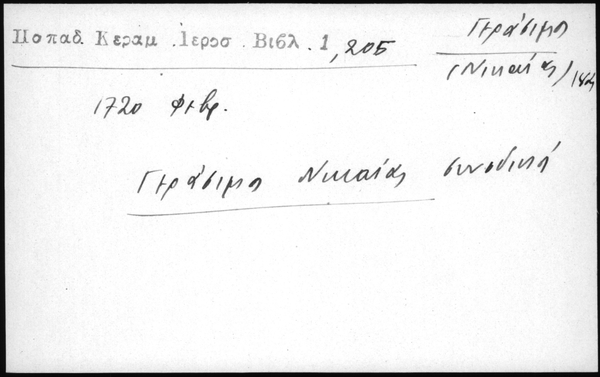 Παπαδ Κεραμ .Ιεροσ .Βιβλ .1,205
Γεράσιμος
(Νικαίας)
1720 Φεβρ.
Γεράσιμος Νικαίας συνοδική